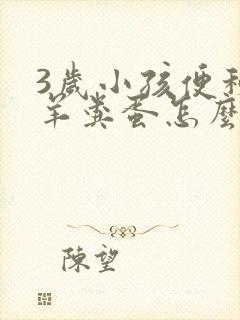 3歲小孩便秘
羊糞蛋怎麼
陳望